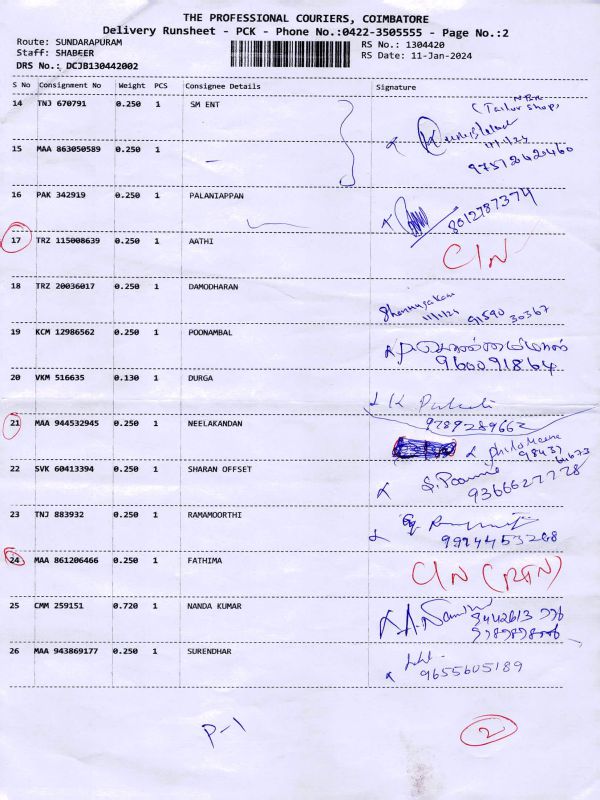 THE PROFESSIONAL COURIERS, COIMBATORE
Delivery Runsheet - PCK - Phone No.:0422-3505555 - Page No.:2
Route: SUNDARAPURAM
Staff: SHABEER
DRS No.: DCJB130442002
RS No.: 1304420
RS Date: 11-Jan-2024
S No Consignment No Weight PCS Consignee Details Signature
14 TNJ 670791 0.250 1 SM ENT
(Tailor shop)
15 MAA 863050589 0.250 1
11/1/24
97512420460
16 PAK 342919 0.250 1 PALANIAPPAN
8012787374
17 TRZ 115008639 0.250 1 AATHI C/N
18 TRZ 20036017 0.250 1 DAMODHARAN
11/1/24 91590 30367
19 KCM 12986562 0.250 1 POONAMBAL
960091864
20 VKM 516635 0.130 1 DURGA
K
9789289662
21 MAA 944532945 0.250 1 NEELAKANDAN
98437
22 SVK 60413394 0.250 1 SHARAN OFFSET
9366627728
23 TNJ 883932 0.250 1 RAMAMOORTHI
9994453268
24 MAA 861206466 0.250 1 FATHIMA C/N (RTN)
25 CMM 259151 0.720 1 NANDA KUMAR
26 MAA 943869177 0.250 1 SURENDHAR
9655605189
P-1
2